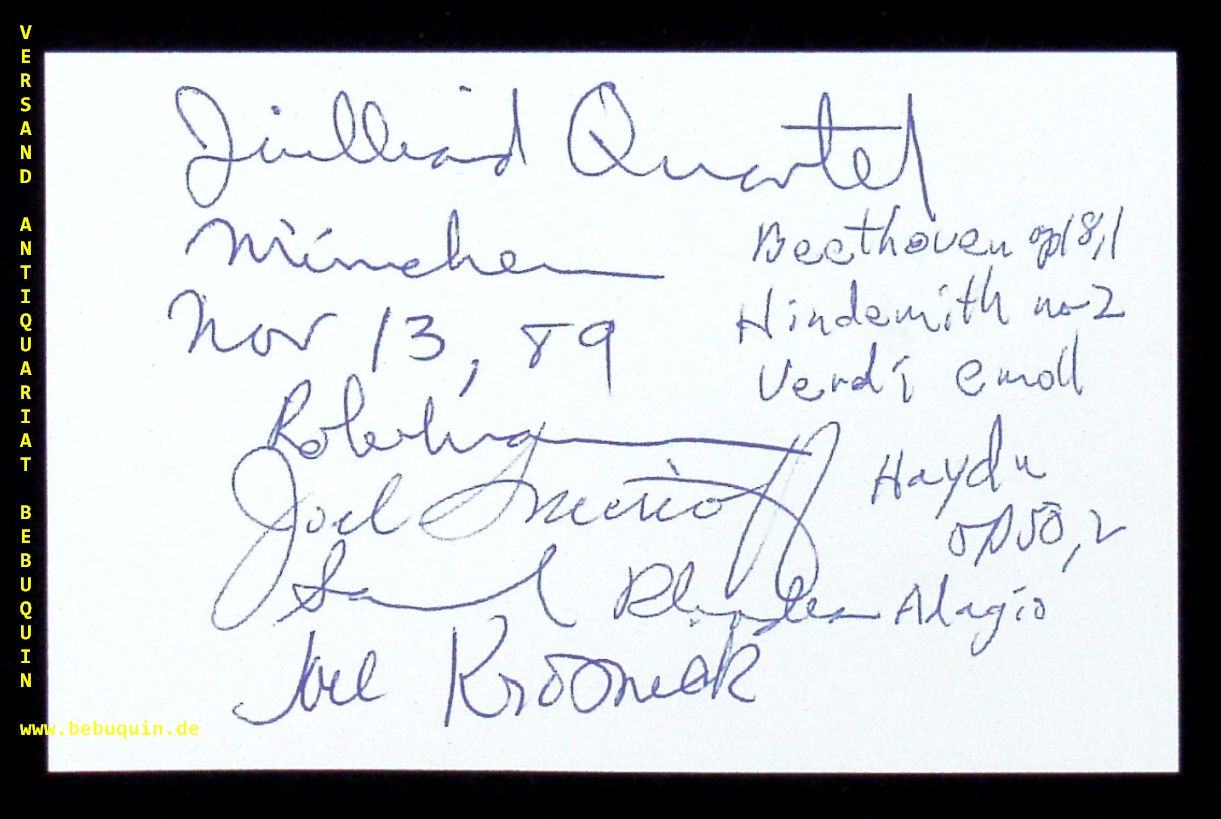 VERSAND ANTIQUARIAT BEBUQUIN
www.bebuquin.de
Juilliard Quartet
München
Nov 13, 89
Robert Mann
Joel Smirnoff
Samuel Rhodes
Joel Krosnick
Beethoven op 18,1
Hindemith no 2
Verdi e moll
Haydn
op 50, 2
Adagio